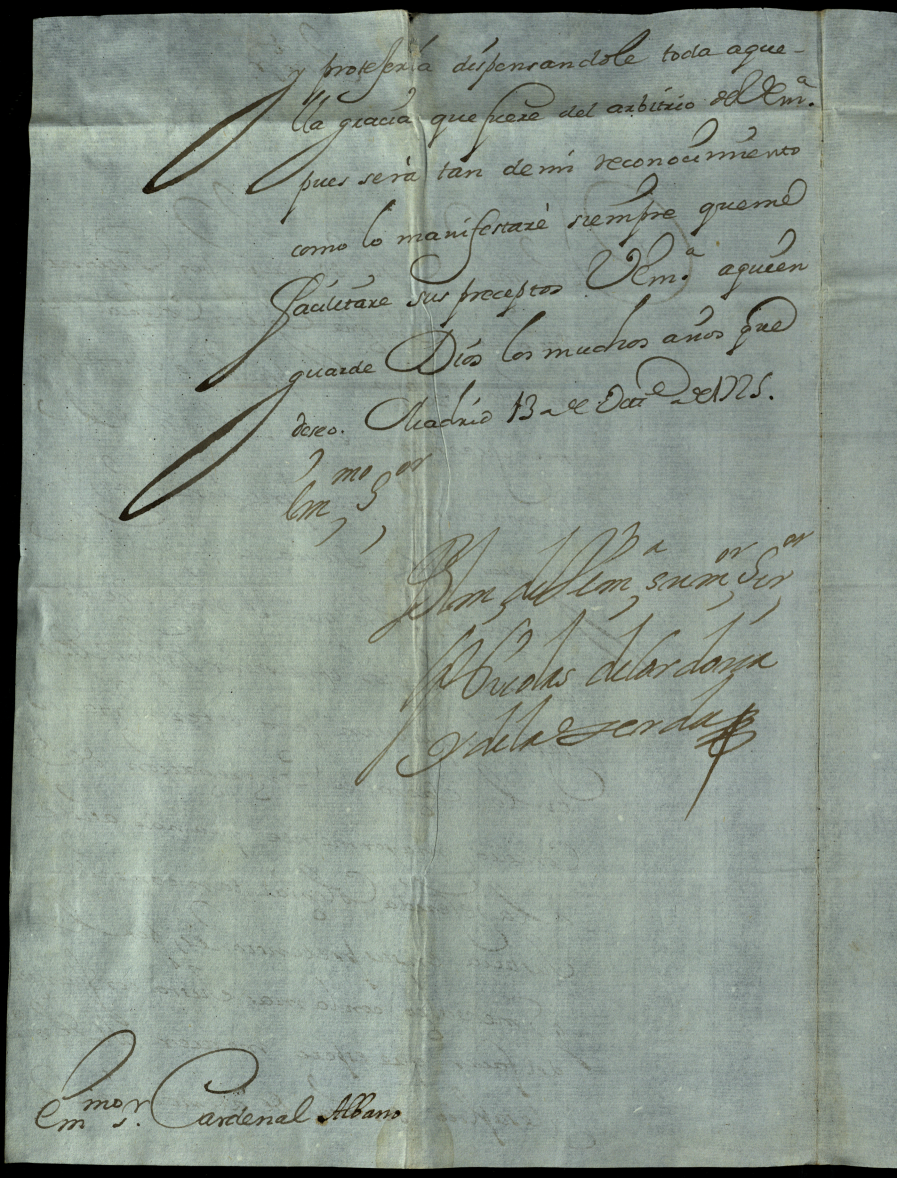 y protesería dispensandole toda aque-
lla gracia que fuere del arbitrio de VEmª.
pues será tan de mi reconocimiento
como lo manifestaré siempre que me
facilitare sus preceptos VEmª. a quien
guarde Dios los muchos años que
deseo. Madrid 13 de Octre de 1725.
Emmo Sor
Blm de VEmª su mor Sor
Nicolas de Cordoua
y de la Zerda
Emmo sr. Cardenal Albano